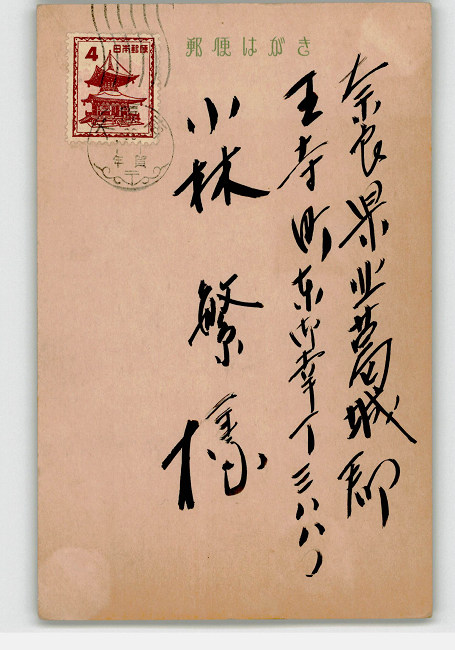 郵便はがき
4 日本郵便
年賀
奈良県北葛城郡
王寺町東御幸丁三八八ノ
小林 繁様